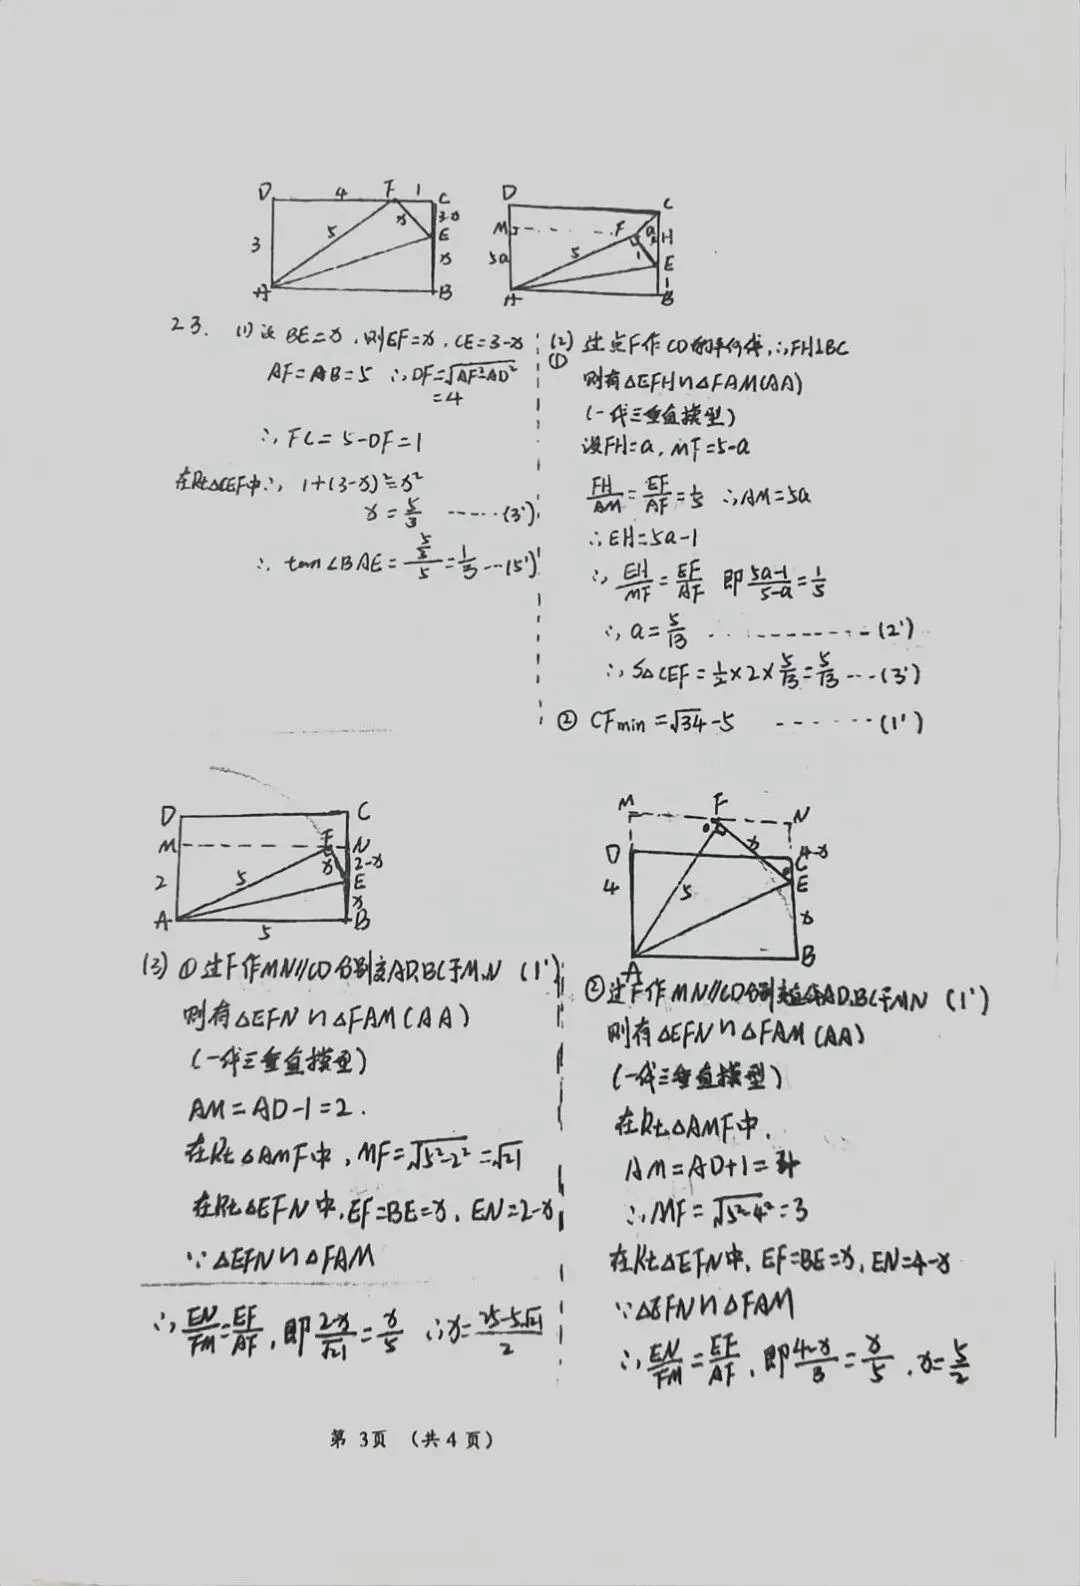 D 4 F 1 C
3 5 x 3-x E x
A B
D C
M F a H
5a 5 1 E 1
A B
23. (1) 设BE=x,则EF=x,CE=3-x
AF=AB=5 ∴DF=√AF²-AD²
=4
∴FC=5-DF=1
在Rt△CEF中∴ 1+(3-x)²=x²
x=5/3 ……(3')
∴tan∠BAE=(5/3)/5=1/3 …(5')
(2) 过点F作CD的平行线,∴FH⊥BC
① 则有△EFH∽△FAM(AA)
(一线三垂直模型)
设FH=a,MF=5-a
FH/AM=EF/AF=1/5 ∴AM=5a
∴EH=5a-1
∴EH/MF=EF/AF 即(5a-1)/(5-a)=1/5
∴a=5/13 ------------(2')
∴S△CEF=1/2×2×5/13=5/13 ---(3')
② CFmin=√34-5 -------(1')
D C
M F N
2 5 x 2-x E x
A 5 B
(3) ①过F作MN∥CD分别交AD,BC于M,N (1')
则有△EFN∽△FAM(AA)
(一线三垂直模型)
AM=AD-1=2.
在Rt△AMF中,MF=√5²-2²=√21
在Rt△EFN中,EF=BE=x,EN=2-x
∵△EFN∽△FAM
∴EN/FM=EF/AF,即(2-x)/√21=x/5 ∴x=(25-5√21)/2
M F N
D x 4-x C
4 5 E x
A B
②过F作MN∥CD分别交AD,BC于MN (1')
则有△EFN∽△FAM(AA)
(一线三垂直模型)
在Rt△AMF中,
AM=AD+1=4
∴MF=√5²-4²=3
在Rt△EFN中,EF=BE=x,EN=4-x
∵△EFN∽△FAM
∴EN/FM=EF/AF,即(4-x)/3=x/5,x=5/2
第 3页 (共 4 页)